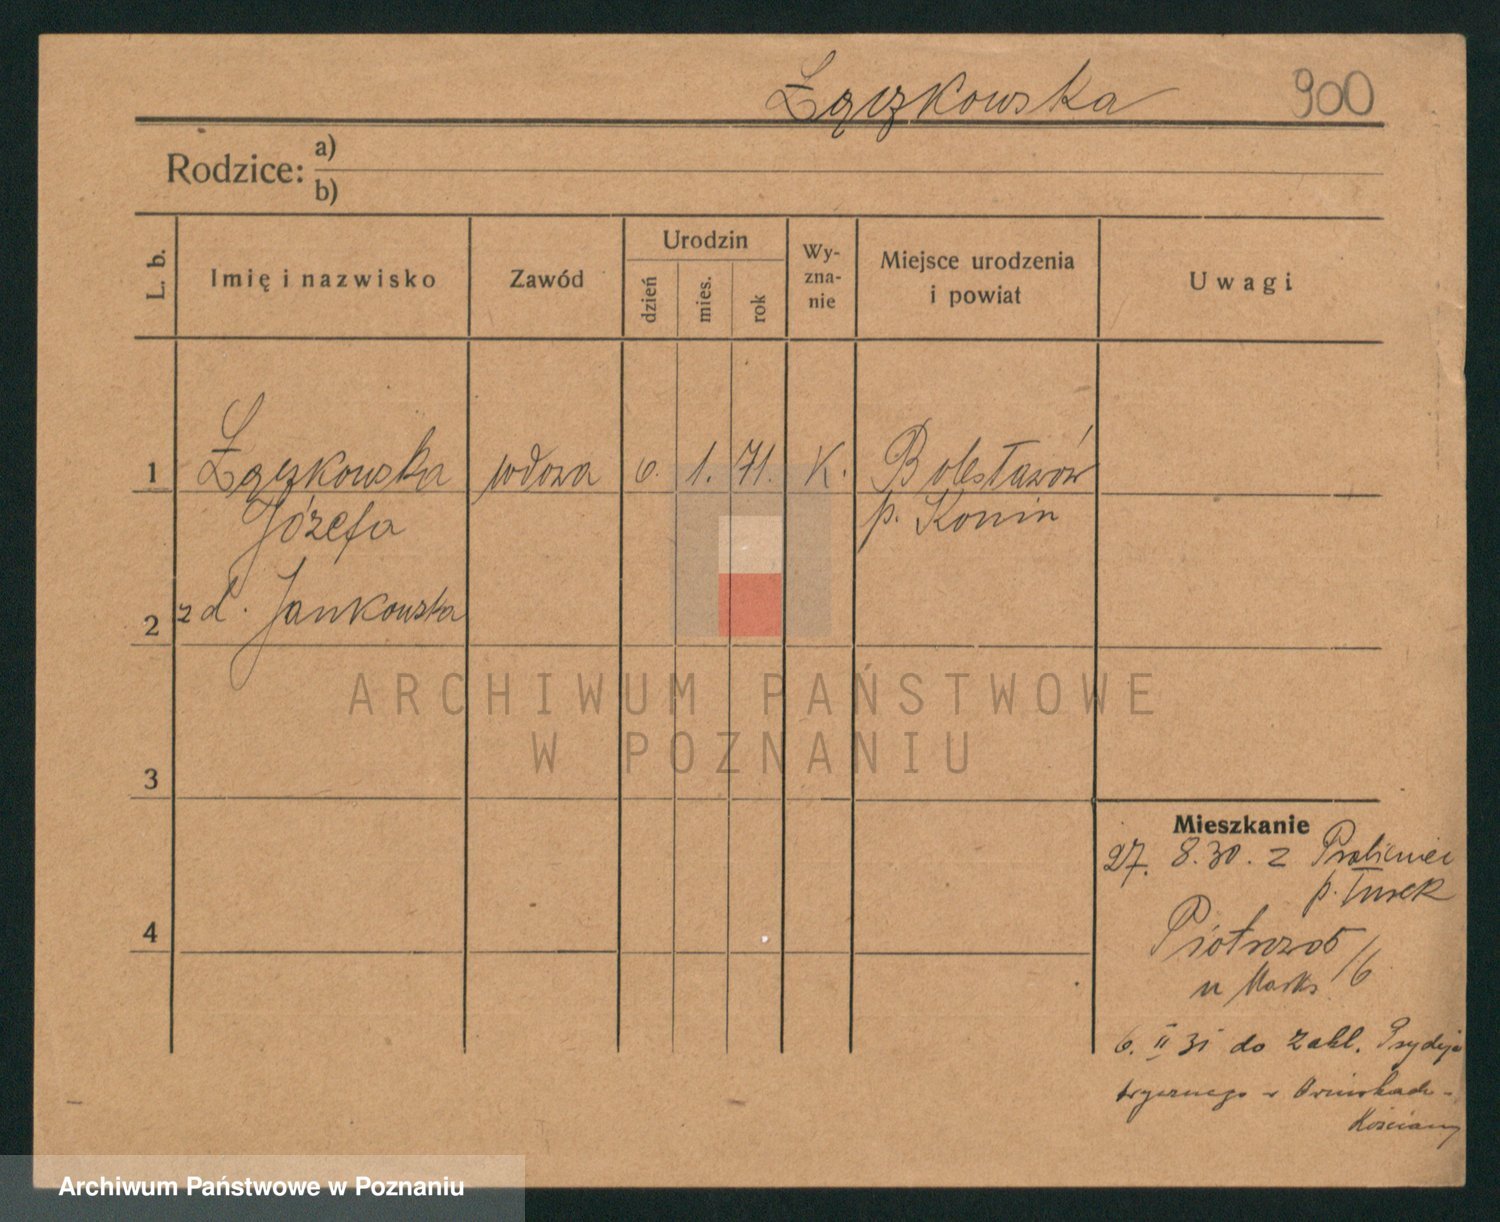 Łączkowska 900
Rodzice: a)
b)
L. b.
Imię i nazwisko
Zawód
Urodzin
dzień
mies.
rok
Wy-
zna-
nie
Miejsce urodzenia
i powiat
Uwagi
1 Łączkowska wdowa 6. 1. 71. K. Bolesławów
Józefa p. Konin
2 z d. Jankowska
3
4
Mieszkanie
27. 8.30. z
p. Turek
u Marks /6
6. II 31 do Zakł.
ARCHIWUM PAŃSTWOWE
W POZNANIU
Archiwum Państwowe w Poznaniu